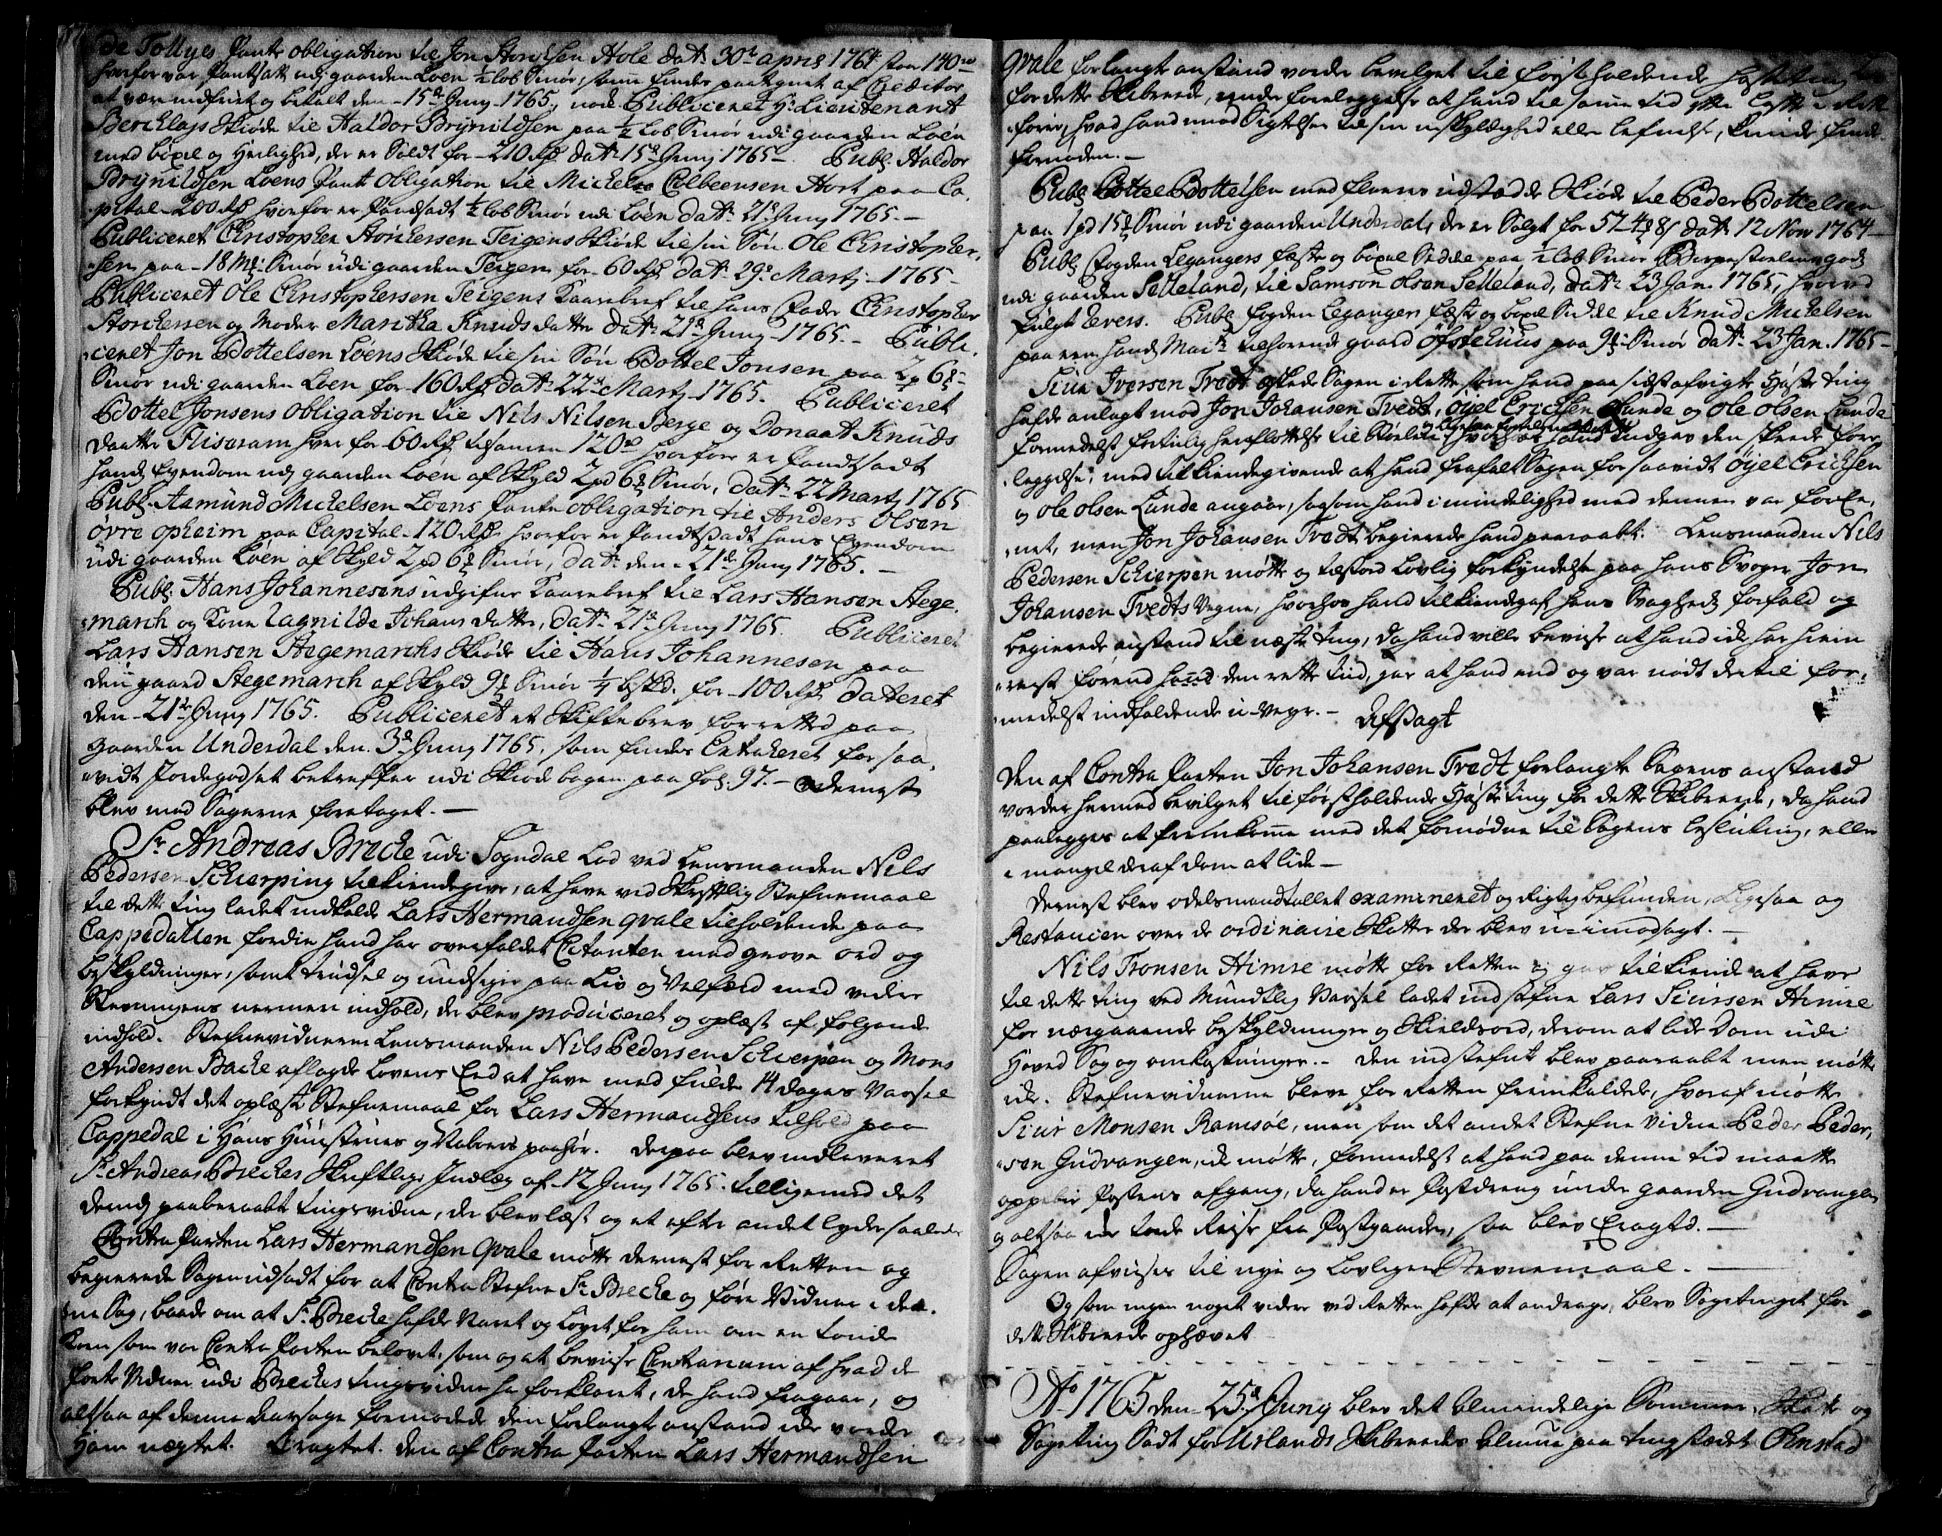 de Tottges Pante obligation til Jon Storchsen Hole dat: 30t april 1764 stor 140
hvorfor var Pantsatt udi gaarden Loen ½ løb Smør, som findes paategnet af Creditor
at være indfriet og betalt den 15de Junij 1765, nock Publiceret Hr Lieutenant
Bercklajs Skiøde til Haldor Brÿnildsen paa ½ Løb Smør udi gaarden Loen
med bøxel og Herlighed, der er Soldt for 210 rd dat: 15de Junij 1765. Publ: Haldor
Brÿnildsen Loens Pant obligation til Michel Colbeensen Hort paa Ca-
pital 200 rd hvorfor er Pandsadt ½ løb Smør udi Loen dat: 21de Junij 1765.
Publiceret Christopher Storchersen Teigens Skiøde til sin Søn Ole Christopher-
sen paa 18 Mk Smør udi gaarden Teigen for 60 rd dat: 29de Martj 1765
Publiceret Ole Christophersen Teigens Kaarebref til hans Fader Christopher
Storchersen og Moder Maritha Knuds datter dat: 21de Junij 1765. Publi-
ceret Jon Bottelsen Loens Skiøde til sin Søn Bottel Jonsen paa 2 p 6
Smør udi gaarden Loen for 160 rd dat: 22de Martj 1765. Publiceret
Bottel Jonsens obligation til Nils Nilsen Berge og Donaat Knuds
daatter Flisaram hver for 60 rd tilsamen 120 hvorfore er Pandtsadt
hans Eyendom udj gaarden Loen af Skyld 2 pd 6 Smør, dat: 22 Martj 1765
Publ: Aamund Michelsen Loens Pante obligation til Anders Olsen
øvre opheim paa Capital 120 rd hvorfor er Pandtsadt hans Eyendom
udi gaarden Loen af Skyld 2 pd 6 Smør, dat: den 21de Junij 1765.
Publ: Hans Johannesens udgifne Kaarebref til Lars Hansen Stege-
march og Kone Ragnilde Johans datter, dat: 21de Junij 1765. Publiceret
Lars Hansen Stegemarchs Skiøde til Hans Johannesen paa
den gaard Stegemarch af Skyld 9 Smør ¼ for 100 rd dateret
den 21de Junij 1765. Publiceret et Skiftebrev forrettet paa
gaarden Underdal den 3de Junij 1765, som findes Extraheret for saa-
vidt Jordegodset betreffer udi Skiøde bogen paa fol: 97. dernest
blev med Sagerne foretaget.
Sr Andreas Brecke udi Sogndal Lod ved Lensmanden Nils
Pedersen Schierping tilkiendegive, at have ved Skrifftlig Stefnemaal
til dette ting ladet indkalde Lars Hermandsen qvale tilholdende paa
Cappedallen fordie hand har overfaldet Citanten med grove ord og
beskyldninger, samt trudsel og undsiger paa Liv og Velfærd med videre
Stevningens nermere indhold, der blev produceret og oplæst af følgende
indhold. Stefnevidnerne Lensmanden Nils Pedersen Schierpen og Mons
Andersen Backe aflagde Lovens Eed at have med fulde 14 dages Varsel
forkyndt det oplæste Stefnemaal for Lars Hermandsens tilhold paa
Cappedal i Hans Huustrues og Naboers paahør. Derpaa blev indleveret
Sr Andreas Breckes Skriftlig Indlæg af 12 Junij 1765 tilligemed det
derudj paaberaabte tingsvidne, der blev læst og et efter andet lyder saalede
Contra Parten Lars Hermandsen Qvale møtte dernest for Retten og
begierede Sagen udsadt for at Contra Stefne Sr Brecke og føre Vidner i den-
ne Sag, baade om at Sr Brecke hafde Naret og Løget for ham om en tønde
Korn som var Contra Parten belovet, som og at beviise Contrarium af hvad de
førte Vidner udi Breckes tingsvidne har forklaret, de hand fragaar, og
altsaa af denne aarsage formodede den forlangte anstand icke vorder
Ham nægtet. Eragtet. Den af Contra Parten Lars Hermandsen
Qvale forlangte anstand vorder bevilget til først holdende Høsteting
for dette Skibreede, under foreleggelse at hand til samme tid
fører, hvad hand mod Sigtelsen til sin uskyldighed eller befrielse, kunde finde
fornøden.
Publ: Bottel Bottelsen med fleeres udstædde Skiøde til Peder Bottelsen
paa 1 pd 15 Smør udi gaarden Underdal, der er Solgt for 57 4 8 s dat: 12 Nov 1764
Publ: Fogden Legangers feste og bøxel Seddel paa ½ Løb Smør godz
udi gaarden Selleland, til Samson Olsen Selleland, dat: 23 Jan 1765, hvorved
fulgte Revers. Publ: Fogden Legangers feste og bøxel Seddel til Knud Michelsen
paa een hands Maits tilhørende gaard Ofstehuus paa 9 Smør dat: 23 Jan: 1765
Siur Iversen Tvedt eskede Sagen i Rette som hand paa sidst afvigte Høste ting
hafde anlagt mod Jon Johansen Tvedt, Øÿel Erichsen Lunde og Ole Olsen Lunde
formedelst fortiilig henflottelse til Støelen hvorhos hand indgav den skeede fore-
leggelse, med tilkiendegivende at hand frafalt Sagen for saavidt Øÿel Erichsen
og Ole Olsen Lunde angaar, saasom hand i mindelighed med dennem var foree-
net, men Jon Johansen Tvedt begierede hand paaraabt. Lensmanden Nils
Pedersen Schierpen møtte og tilstoed Lovlig forkyndelse paa hans Svoger Jon
Johansen Tvedts Vegne, hvorhos hand tilkiendegaf hans Svagheds forfald og
begierede anstand til næste ting, da hand ville beviise at hand icke har hiem
reist førend hand den rette tid, jar at hand end og var nødt dertil for-
medelst indfaldende u-vejr.
Afsagt
Den af Contra Parten Jon Johansen Tvedt forlangte Sagens anstand
vorder hermed bevilget til førstholdende Høste ting for dette Skibreede, da hand
paalegges at fremkomme med det fornødne til Sagens beslutning, eller
i mangel deraf dom at lide
Dernest blev odelsmandtallet examineret og rigtig befunden, ligesaa og
Restancien over de ordinaire Skatter der blev u-imodsagt.
Nils Tronsen Himre møtte for Retten og gav tilkiende at have
til dette ting ved Mundtlig Varsel ladet indstefne Lars Siursen Himre
for nærgaaende beskyldninger og Skieldsord, derom at lide Dom udi
Hoved Sag og omkostninger. Den indstefnte blev paaraabt men møtte
icke. Stefnevidnerne bleve for Retten fremkaldede, hvoraf møtte
Siur Monsen Ramsøe, men som det andet Stefne vidne Peder Peder-
sen Gudvangen, icke møtte, formedelst at hand paa denne tid maatte
oppebie Postens afgang, da hand er Postdreng under gaarden Gudvangen
og altsaa icke torde Reise fra Postgaarden, saa blev Eragted.
Sagen afviises til nye og Lovligere Stevnemaal.
Og som ingen noget videre ved Retten hafde at andrage, blev Sagetinget for
dette Skibreede ophævet
Ao 1765 den 25de Junij blev det Almindelige Sommer, Skatte og
Sageting Sadt for Urlands Skibreedes Almue paa tingstædet Onstad